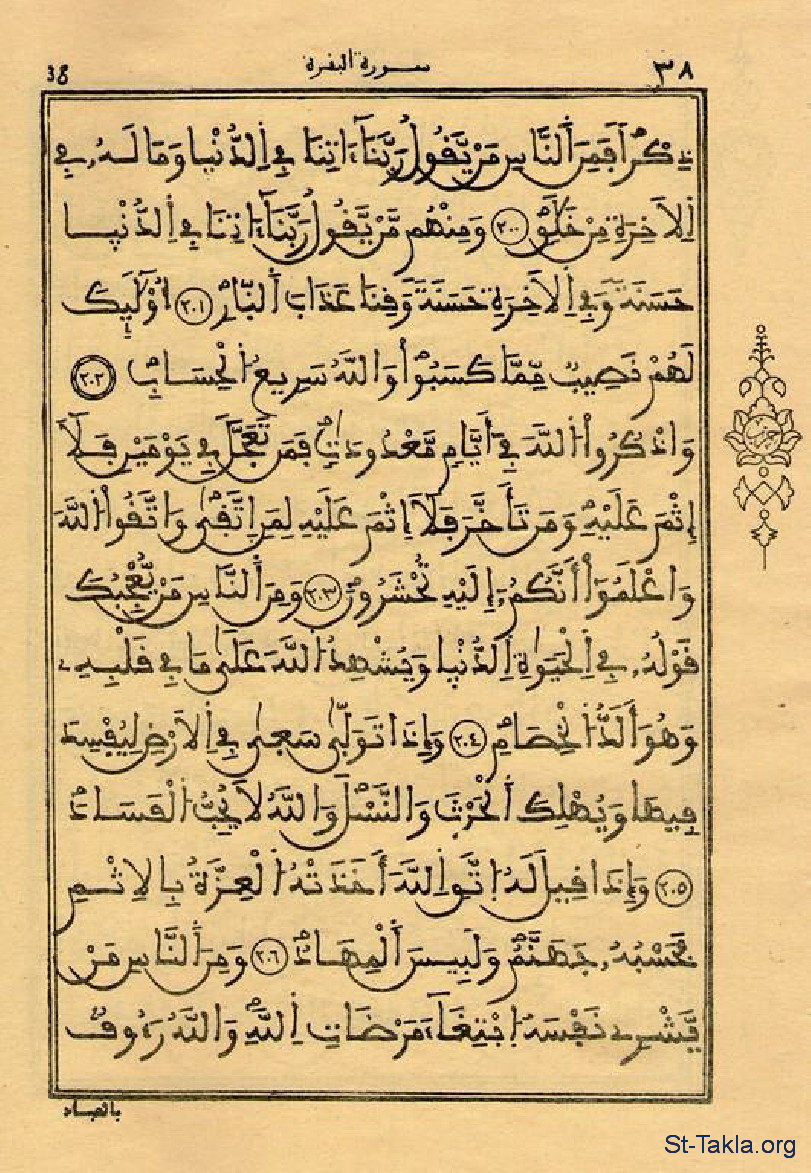 ٣٨ سورة البقرة 38
ذِكْراً فَمِنَ اَ۬لنَّاسِ مَنْ يَّقُولُ رَبَّنَآ ءَاتِنَا فِے اِ۬لدُّنْيا وَمَا لَهُۥ فِے
اِ۬لَاخِرَةِ مِنْ خَلَٰقٍ ٢٠٠ وَمِنْهُم مَّنْ يَّقُولُ رَبَّنَآ ءَاتِنَا فِے اِ۬لدُّنْيا
حَسَنَةً وَفِے اِ۬لَاخِرَةِ حَسَنَةً وَقِنَا عَذَابَ اَ۬لنّ۪ارِ ٢٠١ أُوْلَٰٓئِكَ
لَهُمْ نَصِيبٌ مِّمَّا كَسَبُواْ وَاللَّهُ سَرِيعُ اُ۬لْحِسَابِ ٢٠٢
وَاذْكُرُواْ اُ۬للَّهَ فِےٓ أَيَّامٍ مَّعْدُودَٰتٍ فَمَن تَعَجَّلَ فِے يَوْمَيْنِ فَلَآ
إِثْمَ عَلَيْهِ وَمَن تَأَخَّرَ فَلَآ إِثْمَ عَلَيْهِ لِمَنِ اِ۪تَّق۪ىٰ وَاتَّقُواْ اُ۬للَّهَ
وَاعْلَمُوٓاْ أَنَّكُمُۥٓ إِلَيْهِ تُحْشَرُونَ ٢٠٣ وَمِنَ اَ۬لنَّاسِ مَنْ يُّعْجِبُكَ
قَوْلُهُۥ فِے اِ۬لْحَيَوٰةِ اِ۬لدُّنْيا وَيُشْهِدُ اُ۬للَّهَ عَلَىٰ مَا فِے قَلْبِهِۦ
وَهُوَ أَلَدُّ اُ۬لْخِصَامِ ٢٠٤ وَإِذَا تَوَلّ۪ىٰ سَع۪ىٰ فِے اِ۬لَارْضِ لِيُفْسِدَ
فِيهَا وَيُهْلِكَ اَ۬لْحَرْثَ وَالنَّسْلَ وَاللَّهُ لَا يُحِبُّ اُ۬لْفَسَادَ
٢٠٥ وَإِذَا قِيلَ لَهُ اُ۪تَّقِ اِ۬للَّهَ أَخَذَتْهُ اُ۬لْعِزَّةُ بِالِاثْمِ
فَحَسْبُهُۥ جَهَنَّمُ وَلَبِيسَ اَ۬لْمِهَادُ ٢٠٦ وَمِنَ اَ۬لنَّاسِ مَنْ
يَّشْرِے نَفْسَهُ اُ۪بْتِغَآءَ مَرْضَاتِ اِ۬للَّهِ وَاللَّهُ رَءُوفُۢ
بالعباد
St-Takla.org